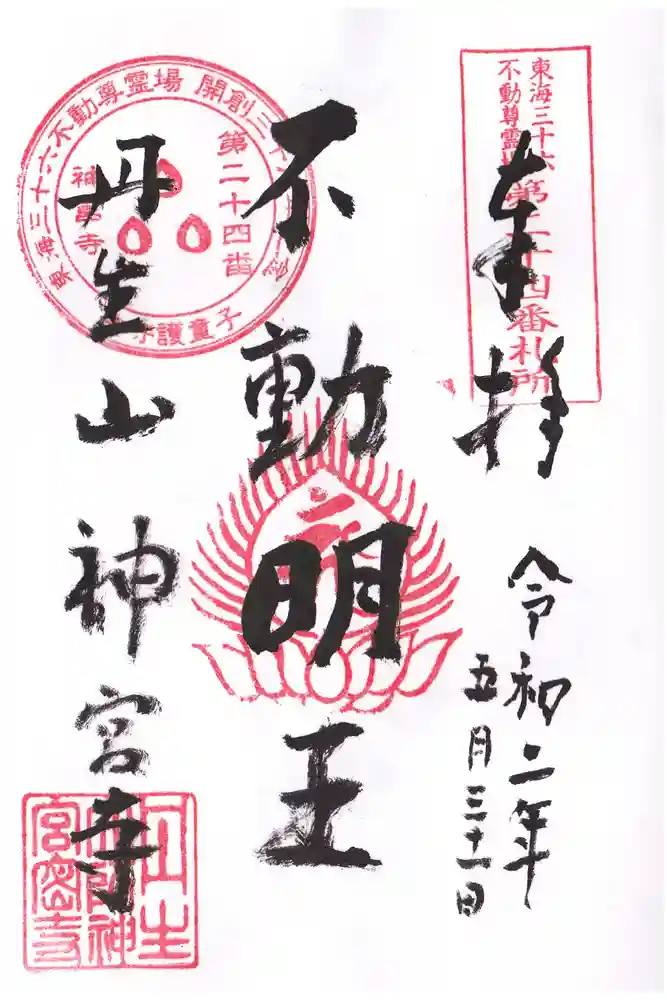 東海三十六
不動尊霊場
第二十四番札所
奉拝
令和二年
五月三十一日
不動明王
丹生山神宮寺
東海三十六不動尊霊場 開創三十
第二十四番
神宮寺
護童子